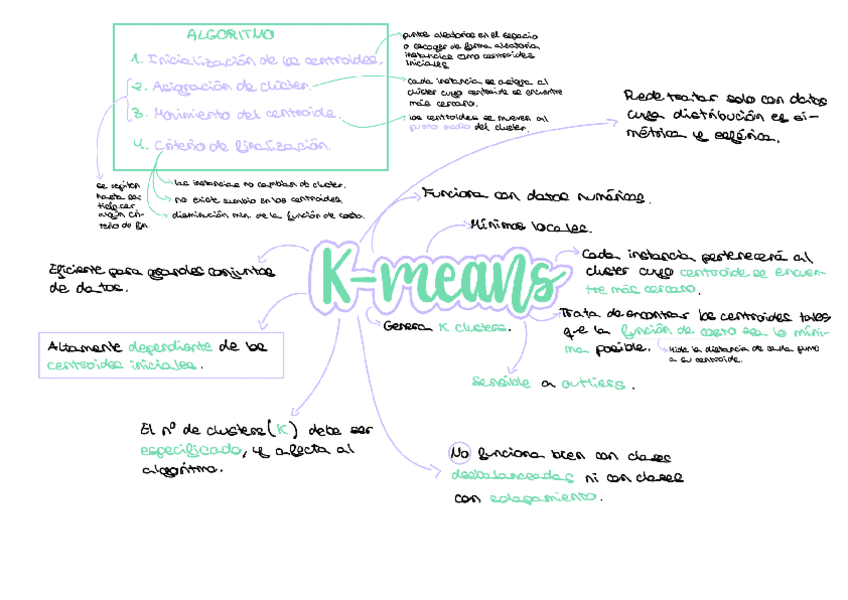 ALGORITMO
1. Inicialización de los centroides.
2. Asignación de clúster.
3. Movimiento del centroide.
4. Criterio de finalización.
puntos aleatorios en el espacio
o escoger de forma aleatoria
instancias como centroides
iniciales
cada instancia se asigna al
clúster cuyo centroide se encuentre
más cercano.
los centroides se mueven al
punto medio del cluster.
se repiten
hasta sa-
tisfacer
algún cri-
terio de fin.
las instancias no cambian de cluster.
no existe cambio en los centroides.
disminución min. de la función de costo.
Puede tratar solo con datos
cuya distribución es si-
métrica y esférica.
Funciona con datos numéricos.
Mínimos locales.
K-means
Cada instancia pertenecerá al
cluster cuyo centroide se encuen-
tre más cercano.
Eficiente para grandes conjuntos
de datos.
Trata de encontrar los centroides tales
que la función de costo sea lo míni-
ma posible.
Mide la distancia de cada punto
a su centroide.
Genera K clusters.
Altamente dependiente de los
centroides iniciales.
Sensible a outliers.
El nº de clusters (K) debe ser
especificado, y afecta al
algoritmo.
No funciona bien con clases
desbalanceadas ni con clases
con solapamiento.